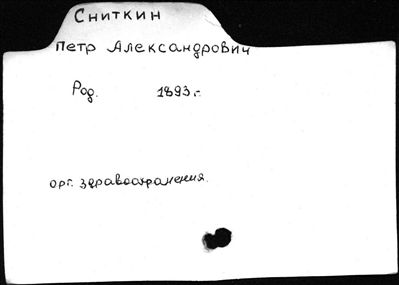 Сниткин
Петр Александрович
Род. 1893 г.
орг. здравоохранения.